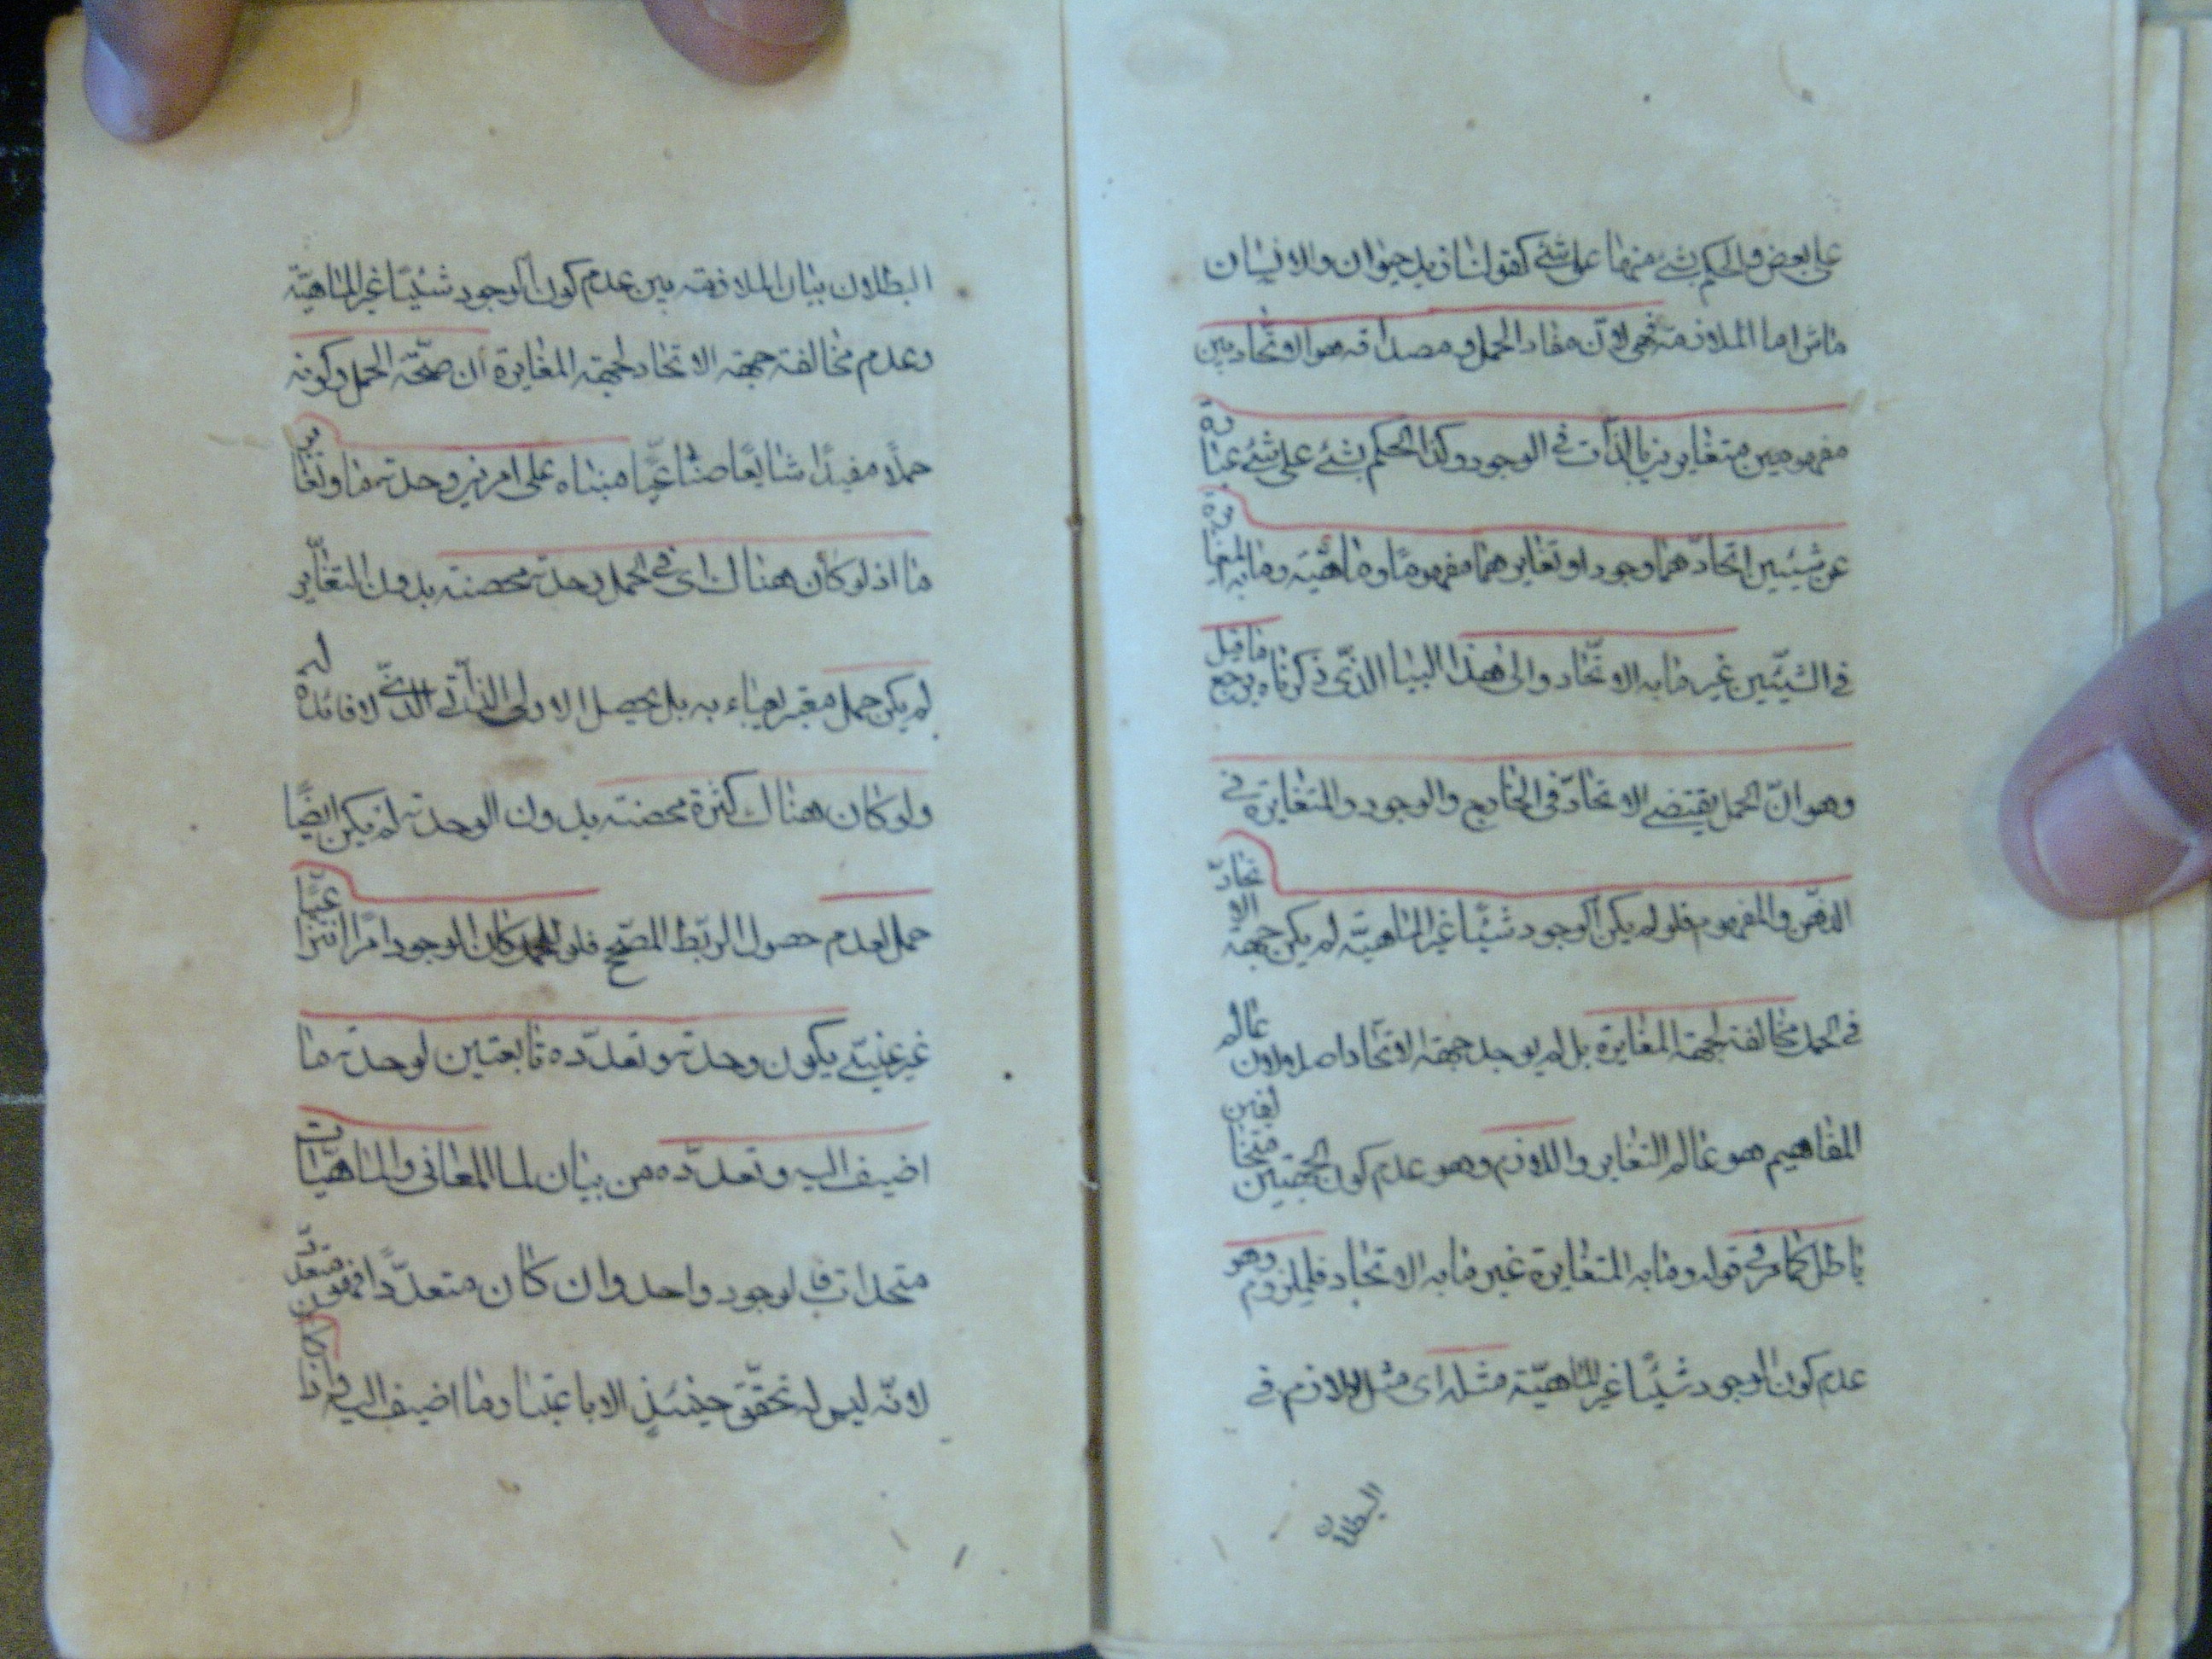 على بعض والحكم بشئ منها على شئ كقولنا زيد حيوان والانسان
ماش اما الملازمة فهى لانّ مفاد الحمل ومصداقه هو الاتحاد بين
مفهومين متغايرين بالذات فى الوجود وكذا الحكم بشئ على شئ عبارة
عن شيئين اتحادهما وجودا وتغايرهما مفهومًا وماهيّة وما به المغايرة
فى الشيئين غير ما به الاتّحاد والى هذا البيان الذى ذكرناه يرجع ما قيل
وهو انّ الحمل يقتضى الاتحاد فى الخارج والوجود والمتغايرة فى
الذهن والمفهوم فلو لم يكن الوجود شيئًا غير الماهيّة لم يكن جهة الاتحاد
فى الحمل مخالفة لجهة المغايرة بل لم يوجد جهة الاتحاد اصلا ولان عالم
المفاهيم هو عالم التغاير واللازم وهو عدم كون الجهتين متخالفين
باطل كما مر فى قوله وما به المتغايرة غير ما به الاتحاد فلملزوم وهو
عدم كون الوجود شيئًا غير الماهيّة مثله اى مثل اللازم فى
البطلان
البطلان بيان الملازمة بين عدم كون الوجود شيئًا غير الماهيّة
وعدم مخالفة جهة الاتحاد لجهة المغايرة ان صحّة الحمل وكونه
حملًا مفيدًا شايعًا صناعيًّا مبناه على امرين وحدة ما وتغاير
ما اذ لو كان هناك اى فى الحمل وحدة محضة بدون التغاير
لم يكن حمل معتبر يعباء به بل يحصل الاولى الذاتى الذى لا فائدة له
ولو كان هناك كثرة محضة بدون الوحدة لم يكن ايضًا
حمل لعدم حصول الربط المصحّح فلو كان الوجود امرًا انتزاعيًّا
غير عينى يكون وحدته وتعدّده تابعتين لوحدة ما
اضيف اليه وتعدّده من بيان لما المعانى والماهيّات
متحدات لوجود واحد وان كان متعدّدًا متعدّد
لانّه ليس له تحقّق حينئذٍ الا باعتبار ما اضيف اليه